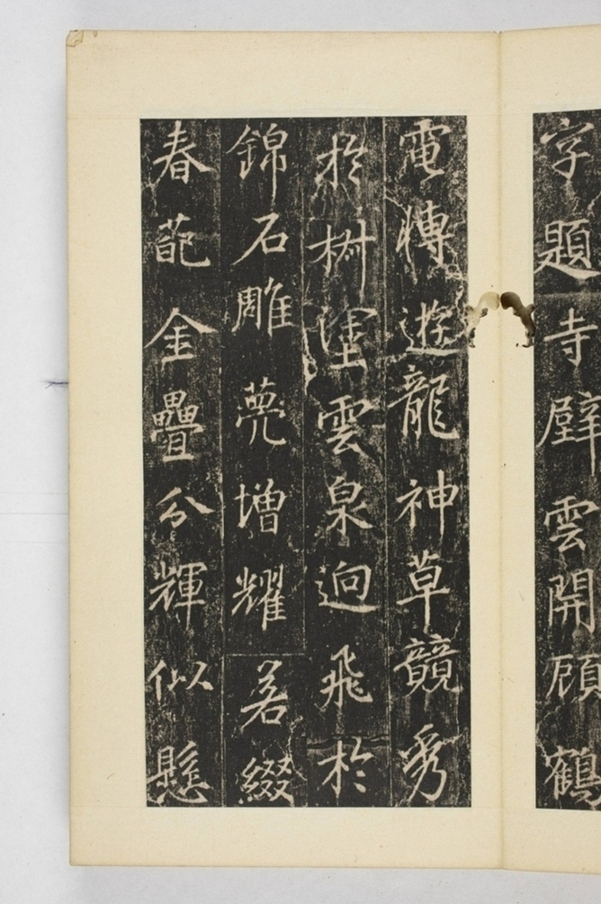 字題寺壁雲開顧鶴
電轉遊龍神草競秀
於樹塗雲泉迥飛於
錦石雕甍增耀若綴
春葩金疊分輝似懸